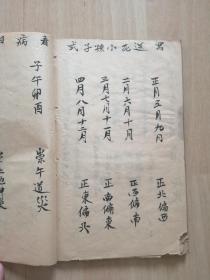 寫送花小孩子式
正月五月九月 正北偏西
二月六月十月 正西偏南
三月七月十一月 正南偏東
四月八月十二月 正東偏北
看病
子午卯酉 崇午道災